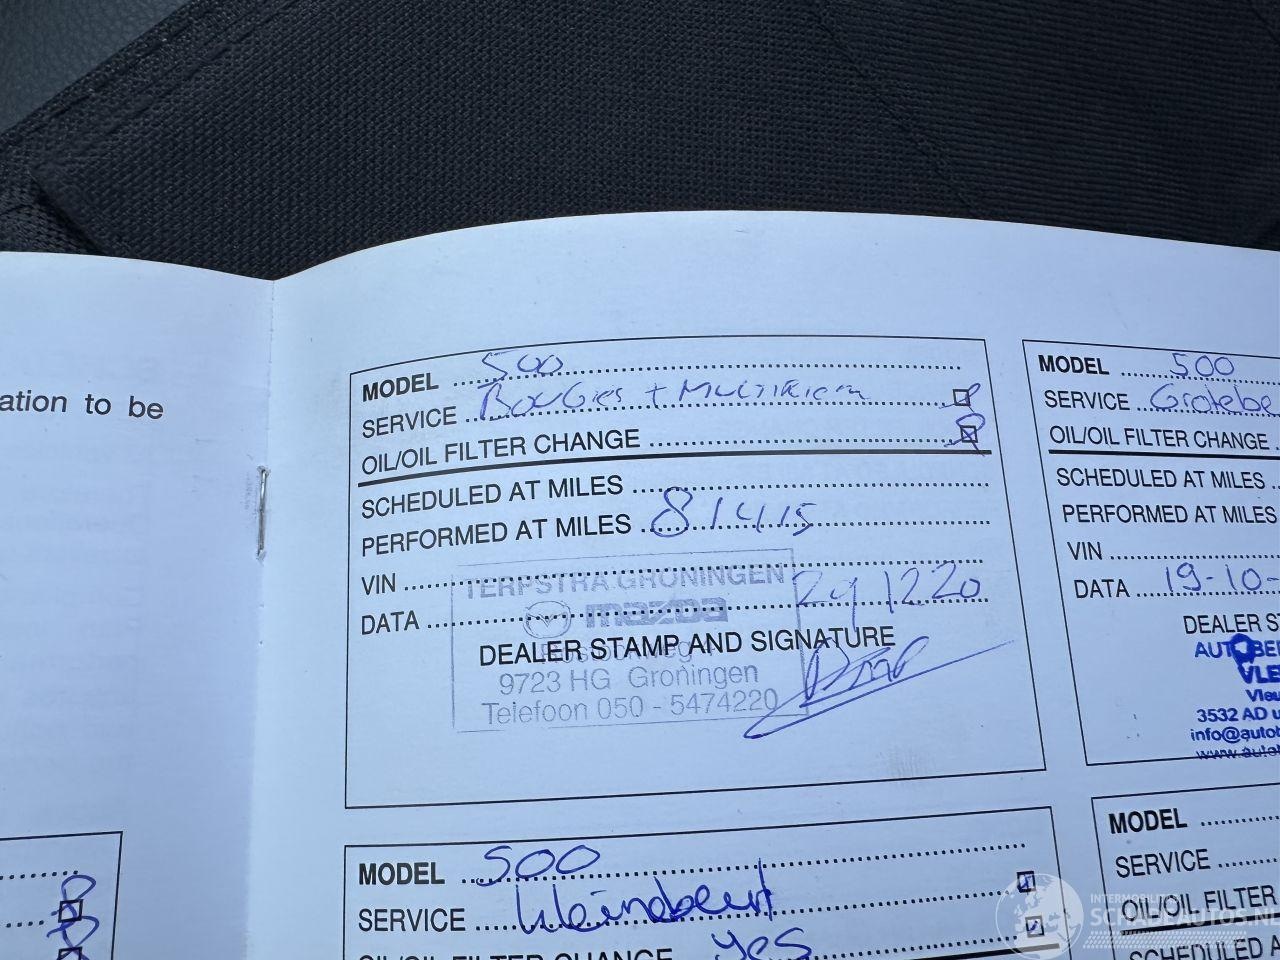 ation to be
MODEL 500
SERVICE Bougies + Multiriem
OIL/OIL FILTER CHANGE
SCHEDULED AT MILES
PERFORMED AT MILES 81415
VIN
DATA 291220
DEALER STAMP AND SIGNATURE
TERPSTRA GRONINGEN
mazda
9723 HG Groningen
Telefoon 050 - 5474220
MODEL 500
SERVICE Grotebe
OIL/OIL FILTER CHANGE
SCHEDULED AT MILES
PERFORMED AT MILES
VIN
DATA 19-10-
DEALER S
AUTOBE
VLE
Vleu
3532 AD u
info@autob
www.autob
MODEL 500
SERVICE Kleinbeurt
OIL/OIL FILTER CHANGE yes
MODEL
SERVICE
OIL/OIL FILTER
SCHEDULED A
INTERMOBILITY
SCHADEAUTOS.NL